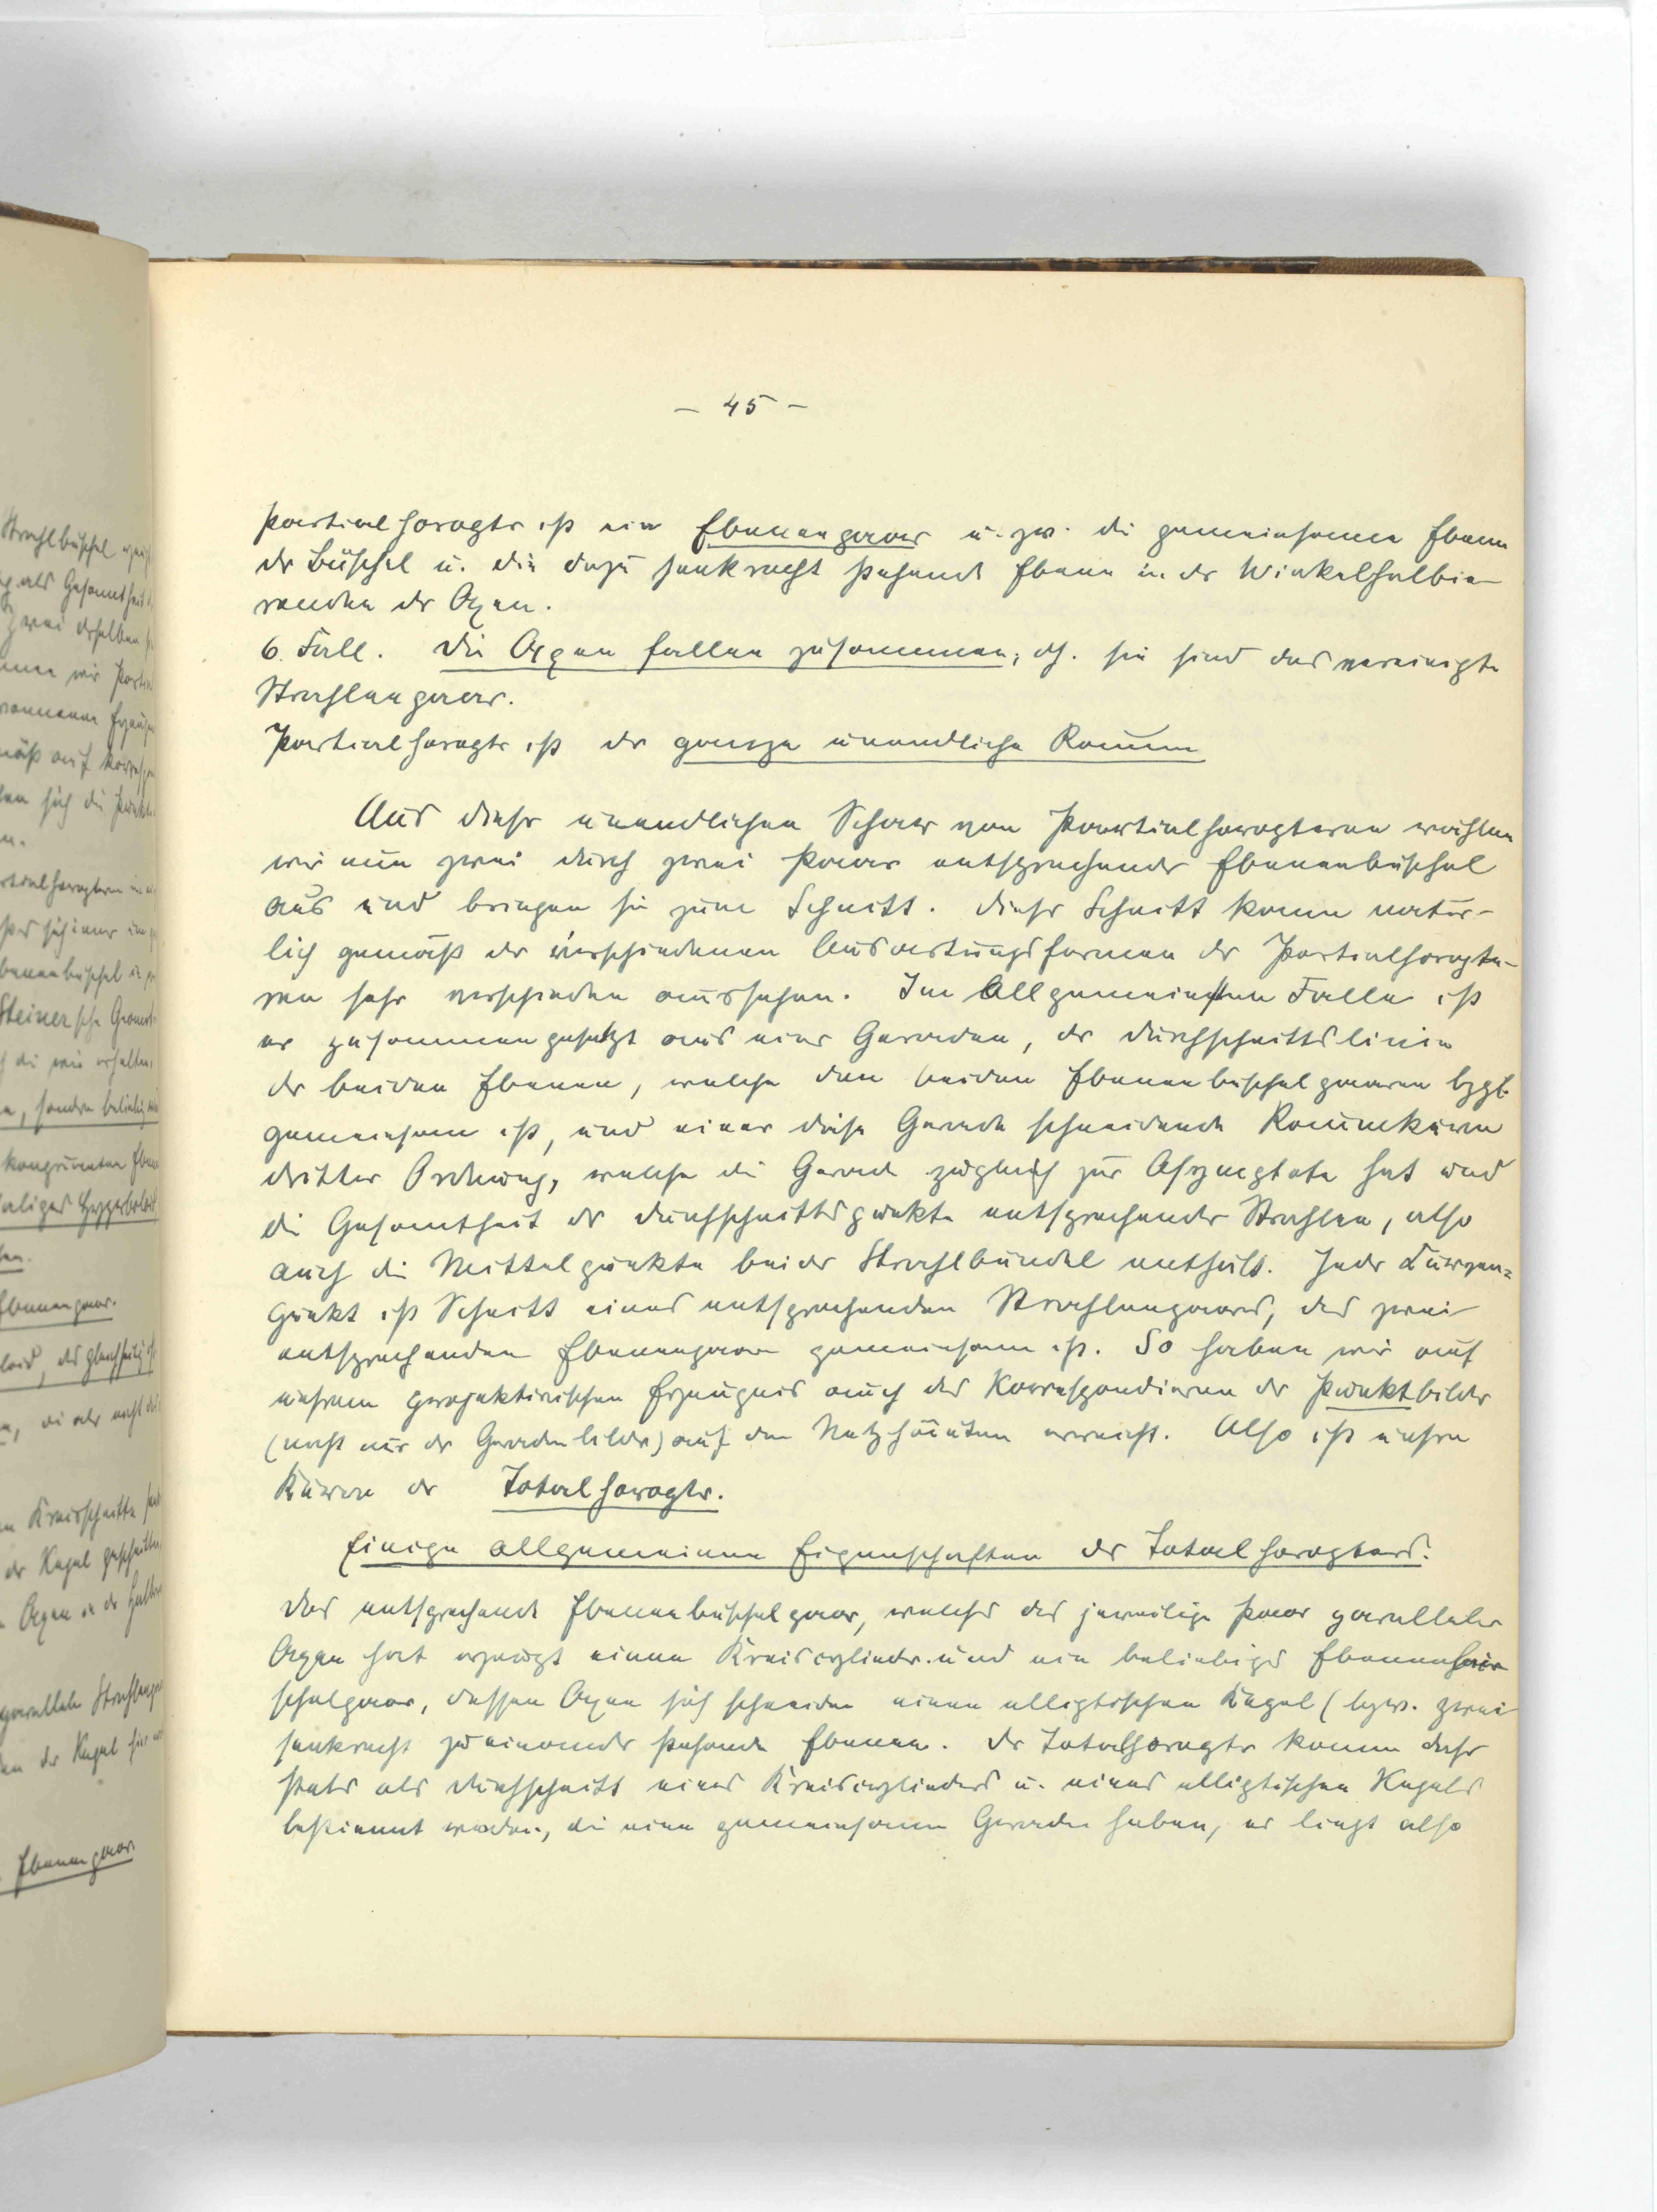 - 45 -
Partialhoropter ist ein Ebenenpaar u. zw. die gemeinsame Ebene
der Büschel u. die dazu senkrecht stehende Ebene in der Winkelhalbie-
renden der Axen.
6. Fall. Die Axen fallen zusammen, dh. sie sind das vereinigte
Strahlenpaar.
Partialhoropter ist der ganze unendliche Raum
Aus dieser unendlichen Schar von Partialhoropteren wählen
wir nun zwei durch zwei Paare entsprechender Ebenenbüschel
aus und bringen sie zum Schnitt. Dieser Schnitt kann natür-
lich gemäß der verschiedenen Ausartungsformen der Partialhoropte-
ren sehr verschieden aussehen. Im Allgemeinsten Falle ist
er zusammengesetzt aus einer Geraden, der Durchschnittslinie
der beiden Ebenen, welche den beiden Ebenenbüschelpaaren bzgl.
gemeinsam ist, und einer diese Gerade schneidende Raumkurve
dritter Ordnung, welche die Gerade zugleich zur Asymptote hat und
die Gesamtheit der Durchschnittspunkte entsprechender Strahlen, also
auch die Mittelpunkte beider Strahlbündel enthält. Jeder Kurven-
punkt ist Schnitt eines entsprechenden Strahlenpaares, das zwei
entsprechenden Ebenenpaaren gemeinsam ist. So haben wir auf
unserem projektivischen Erzeugnis auch das Korrespondieren der Punktbilder
(nicht nur der Geradenbilder) auf den Netzhäuten erreicht. Also ist unsere
Kurve der Totalhoropter.
Einige allgemeinen Eigenschaften des Totalhoropters.
Das entsprechende Ebenenbüschelpaar, welches das jeweilige Paar paralleler
Axen hat erzeugt einen Kreiscylinder und ein beliebiges Ebenenbü-
schelpaar, dessen Axen sich schneiden einen elliptischen Kegel (bzw. zwei
senkrecht zueinander stehende Ebenen. Der Totalhoropter kann daher
stets als Durchschnitt eines Kreiscylinders u. eines elliptischen Kegels
bestimmt werden, die eine gemeinsame Gerade haben, er liegt also